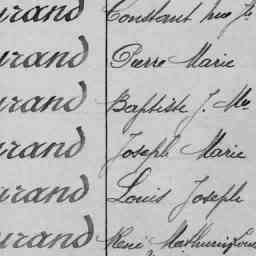 urand Constant
urand Pierre Marie
urand Baptiste J. Mie
urand Joseph Marie
urand Louis Joseph
urand René Mathurin